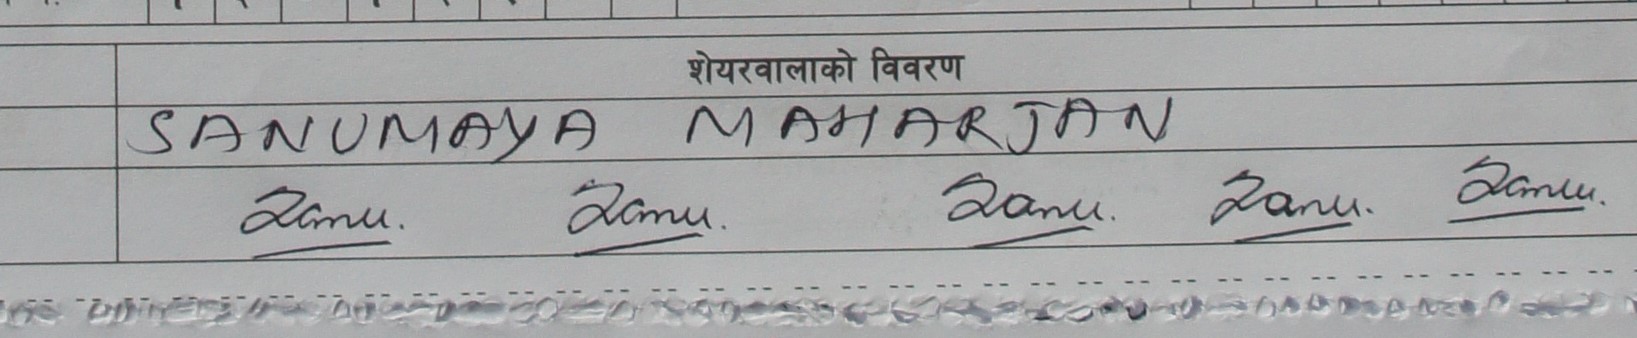 शेयरवालाको विवरण
SANUMAYA MAHARJAN
Sanu. Sanu. Sanu. Sanu. Sanu.